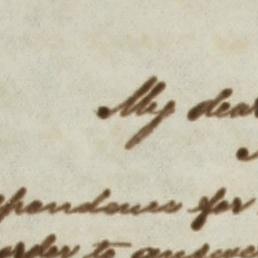 My dear
pendence for
order to answe